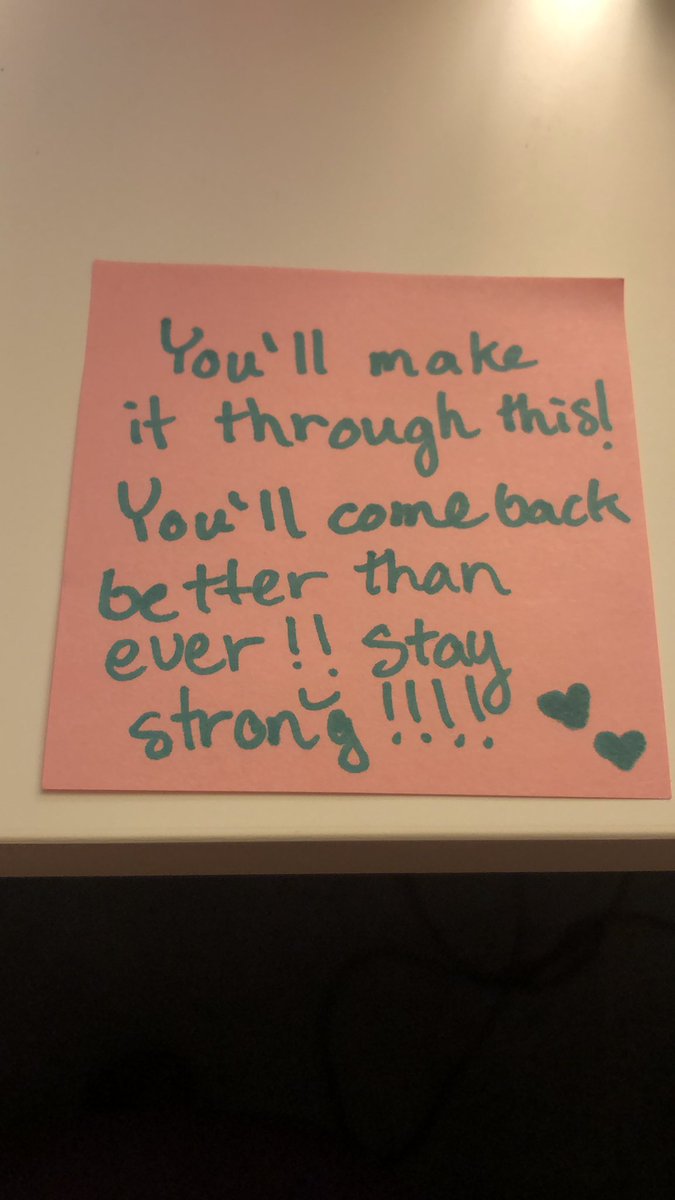 You'll make
it through this!
You'll come back
better than
ever!! Stay
strong!!!!